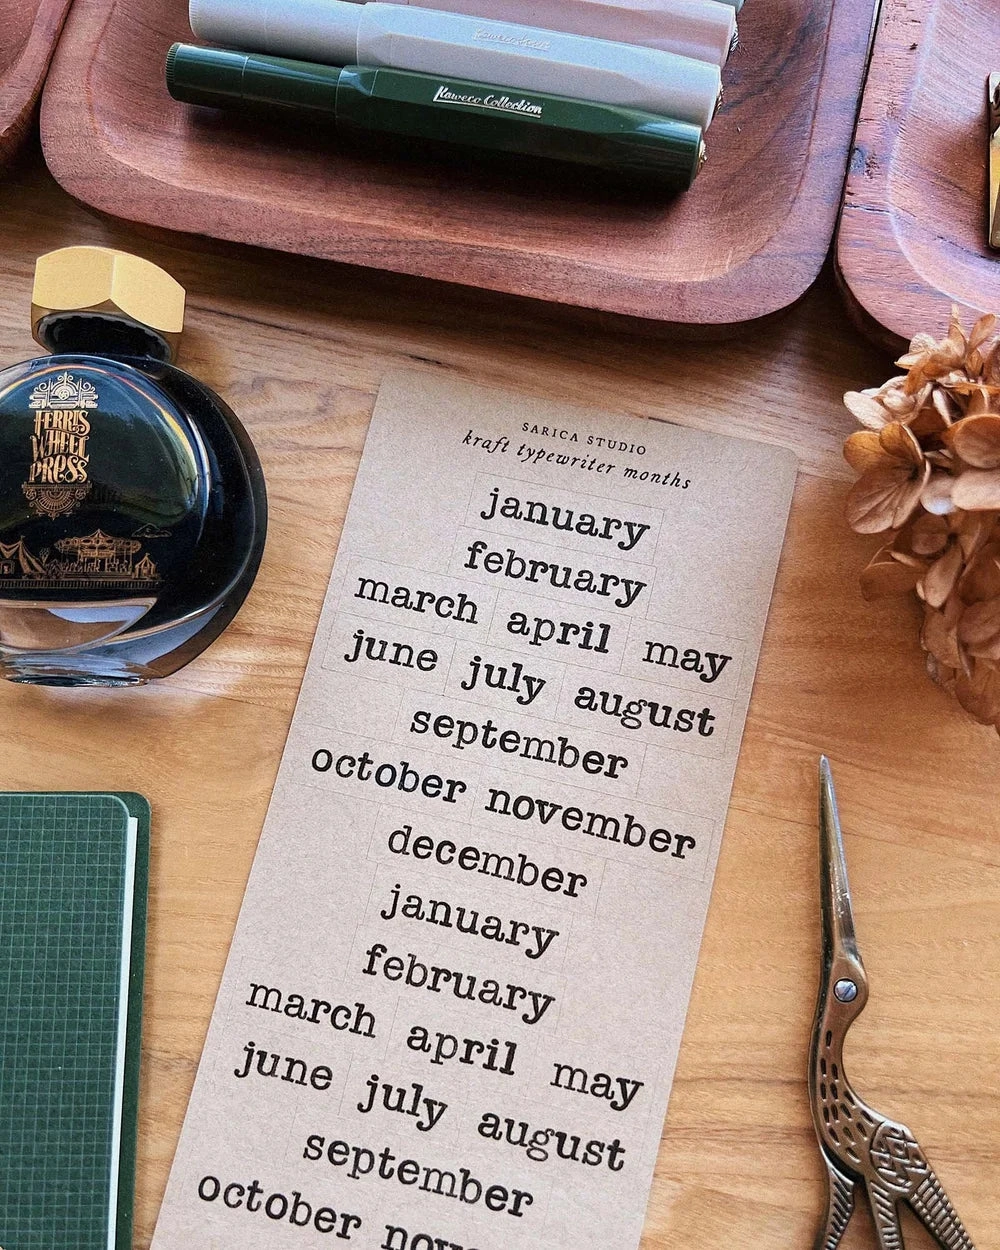 Kaweco Collection
FERRIS
WHEEL
PRESS
SARICA STUDIO
kraft typewriter months
january
february
march april may
june july august
september
october november
december
january
february
march april may
june july august
september
october